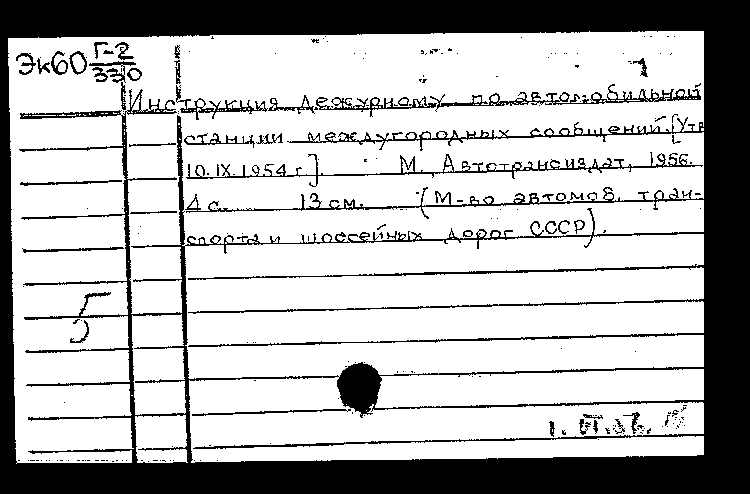 Эк60 Г-2
330
Инструкция дежурному по автомобильной
станции междугородных сообщений. [Утв
10.IX.1954 г.]. М., Автотрансиздат, 1956.
4 с. 13 см. (М-во автомоб. тран-
спорта и шоссейных дорог СССР).
5